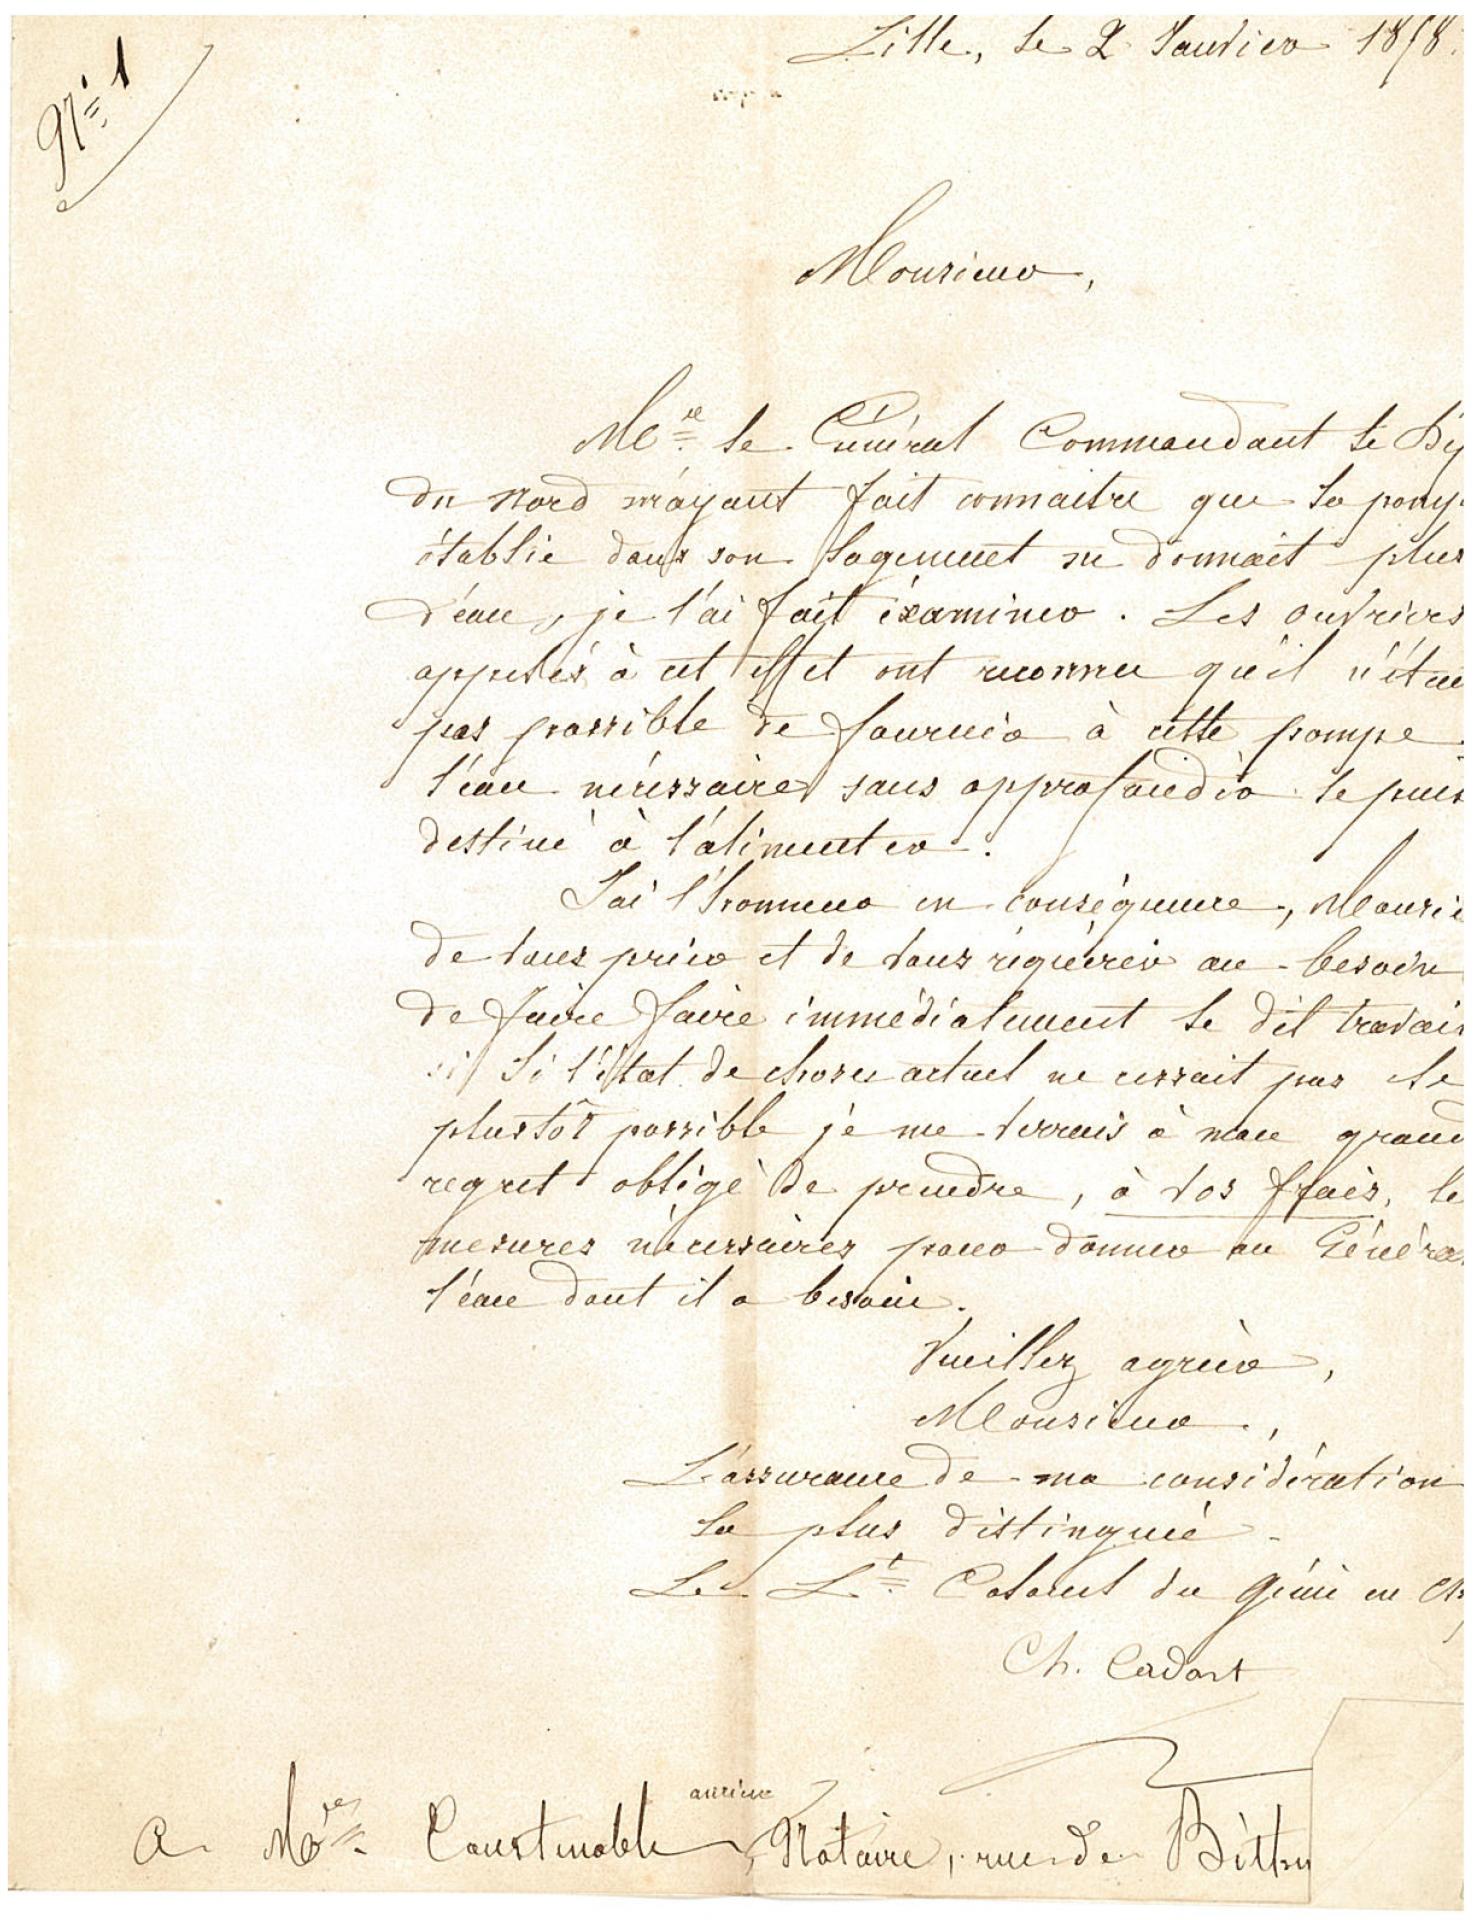 N° 1
Lille, le 2 Janvier 1858.
Monsieur,
Mr. le Général Commandant le
du Nord m'ayant fait connaitre que la pomp
établie dans son logement ne donnait plus
d'eau, je l'ai fait éxaminer. Les ouvriers
appelés à cet effet ont reconnu qu'il n'étai
pas possible de fournir à cette pompe
l'eau nécessaire sans approfondir le puis
destiné à l'alimenter.
J'ai l'honneur en conséquence, Monsie
de vous prier et de vous réquérir au besoin
de faire faire immédiatement le dit travai
Si l'état de choses actuel ne cessait pas le
plustôt possible je me verrais à mon grand
regret obligé de prendre, à vos frais, le
mesures nécessaires pour donner au Généra
l'eau dont il a besoin.
Veuillez agréer,
Monsieur,
L'assurance de ma considération
la plus distinguée
Le Lt. Colonel du génie en
Ch. Cadart
ancien
A Mr. Coustenoble, Notaire, rue de Béthu